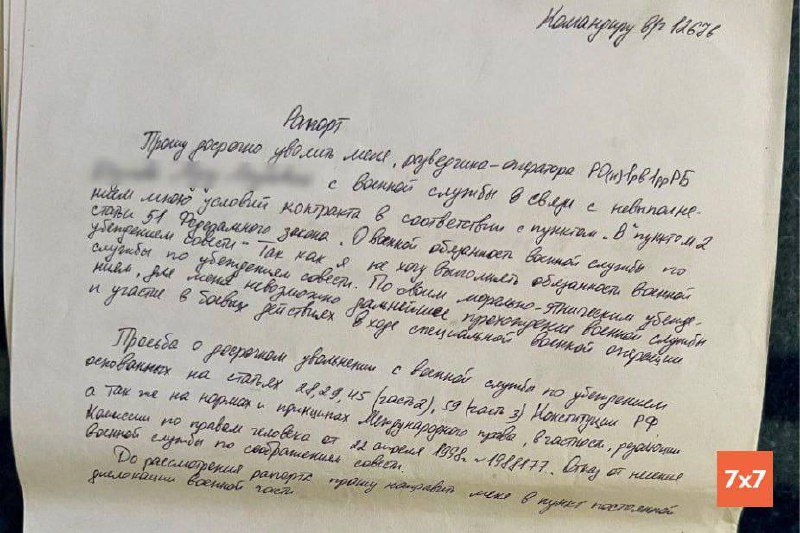 Командиру в/ч 12676
Рапорт
Прошу досрочно уволить меня, разведчика-оператора РО(н)1рв1ррРБ
с военной службы в связи с невыполне-
нием мною условий контракта в соответствии с пунктом. "В" пунктом 2
статьи 51 Федерального закона. О военной обязанность военной службы по
убеждением совести - Так как я не хочу выполнять обязанность военной
службы по убеждением совести. По своим морально-этническим убежде-
нием, для меня невозможно дальнейшее прохождение военной службы
и участие в боевых действиях в ходе специальной военной операции
Просьба о досрочном увольнении с военной службы по убеждением
основанных на статьях 28,29,45 (часть 2), 59 (часть 3) Конституции РФ
а так же на нормах и принципах Международного права, в частноси, резолюции
Комиссии по правам человека от 22 апреля 1998г. 1988177. Отказ от несение
военной службы по соображениям совести.
До рассмотрения рапорта прошу направить меня в пункт постоянной
дислокации военной части
7x7